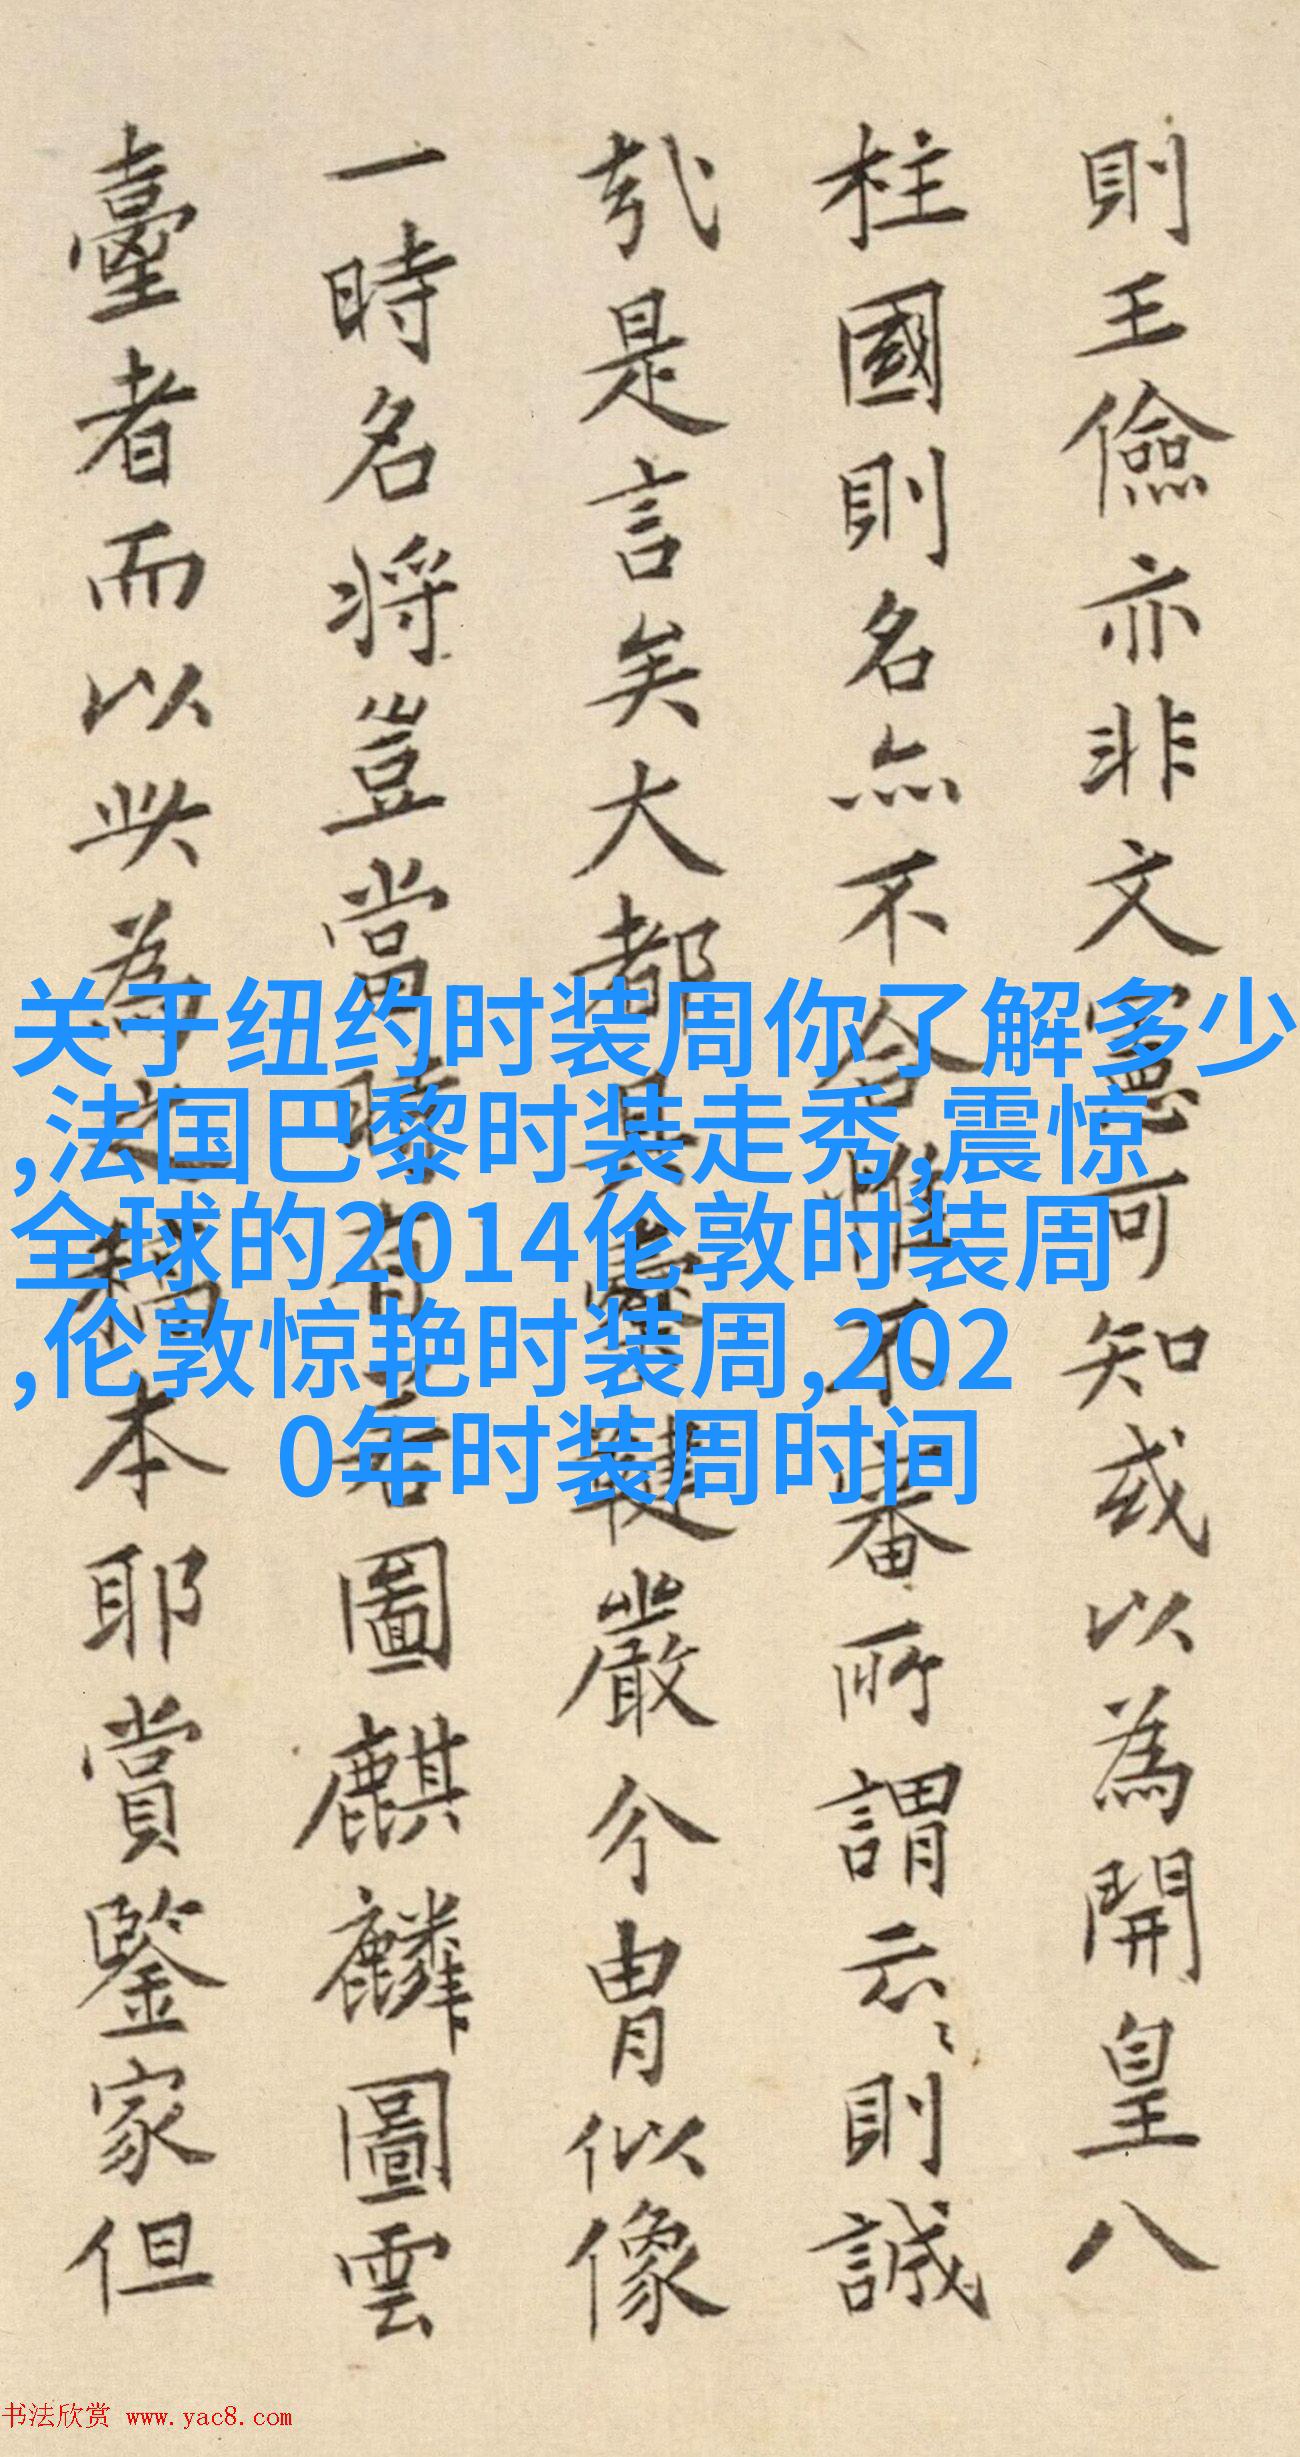 則王儉亦非文憲可知或以為開皇八
柱國則名亦不合雖不審所謂云〻則誠
哉是言矣大都具櫜鞬嚴介冑似像
一時名將豈當時有若圖麒麟圖雲
臺者而以此為之稿本耶賞鑒家但
关于纽约时装周你了解多少
,法国巴黎时装走秀,震惊
全球的2014伦敦时装周
,伦敦惊艳时装周,202
0年时装周时间
书法欣赏 www.yac8.com